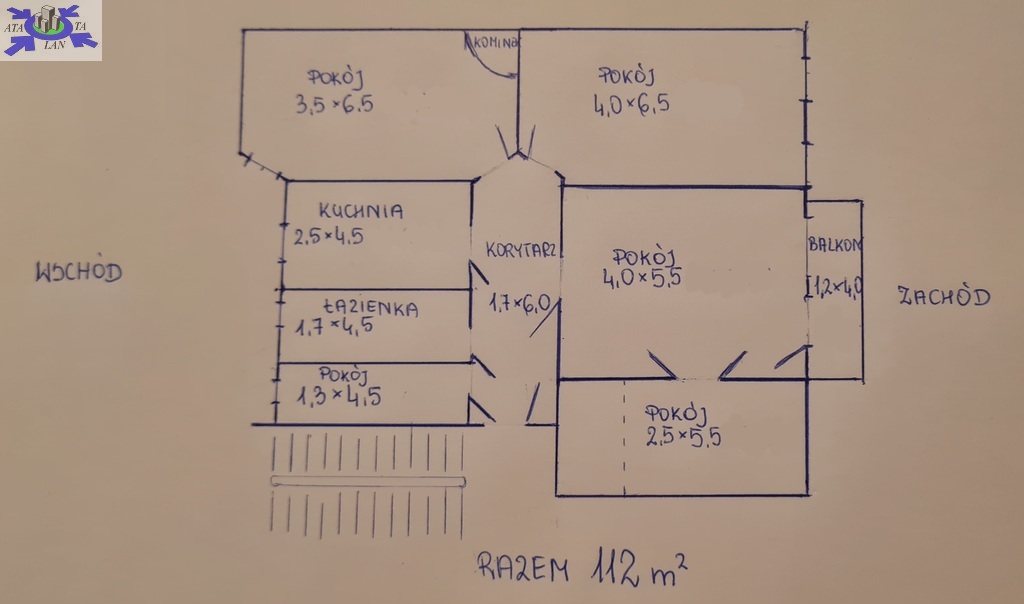 ATA TA
LAN
KOMINA
POKÓJ
3,5×6.5
POKÓJ
4,0×6,5
KUCHNIA
2,5×4,5
KORYTARZ
1,7×6,0
POKÓJ
4,0×5,5
BALKON
1,2×4,0
WSCHÓD
ZACHÓD
ŁAZIENKA
1,7×4,5
POKÓJ
1,3×4,5
POKÓJ
2,5×5,5
RAZEM 112 m²